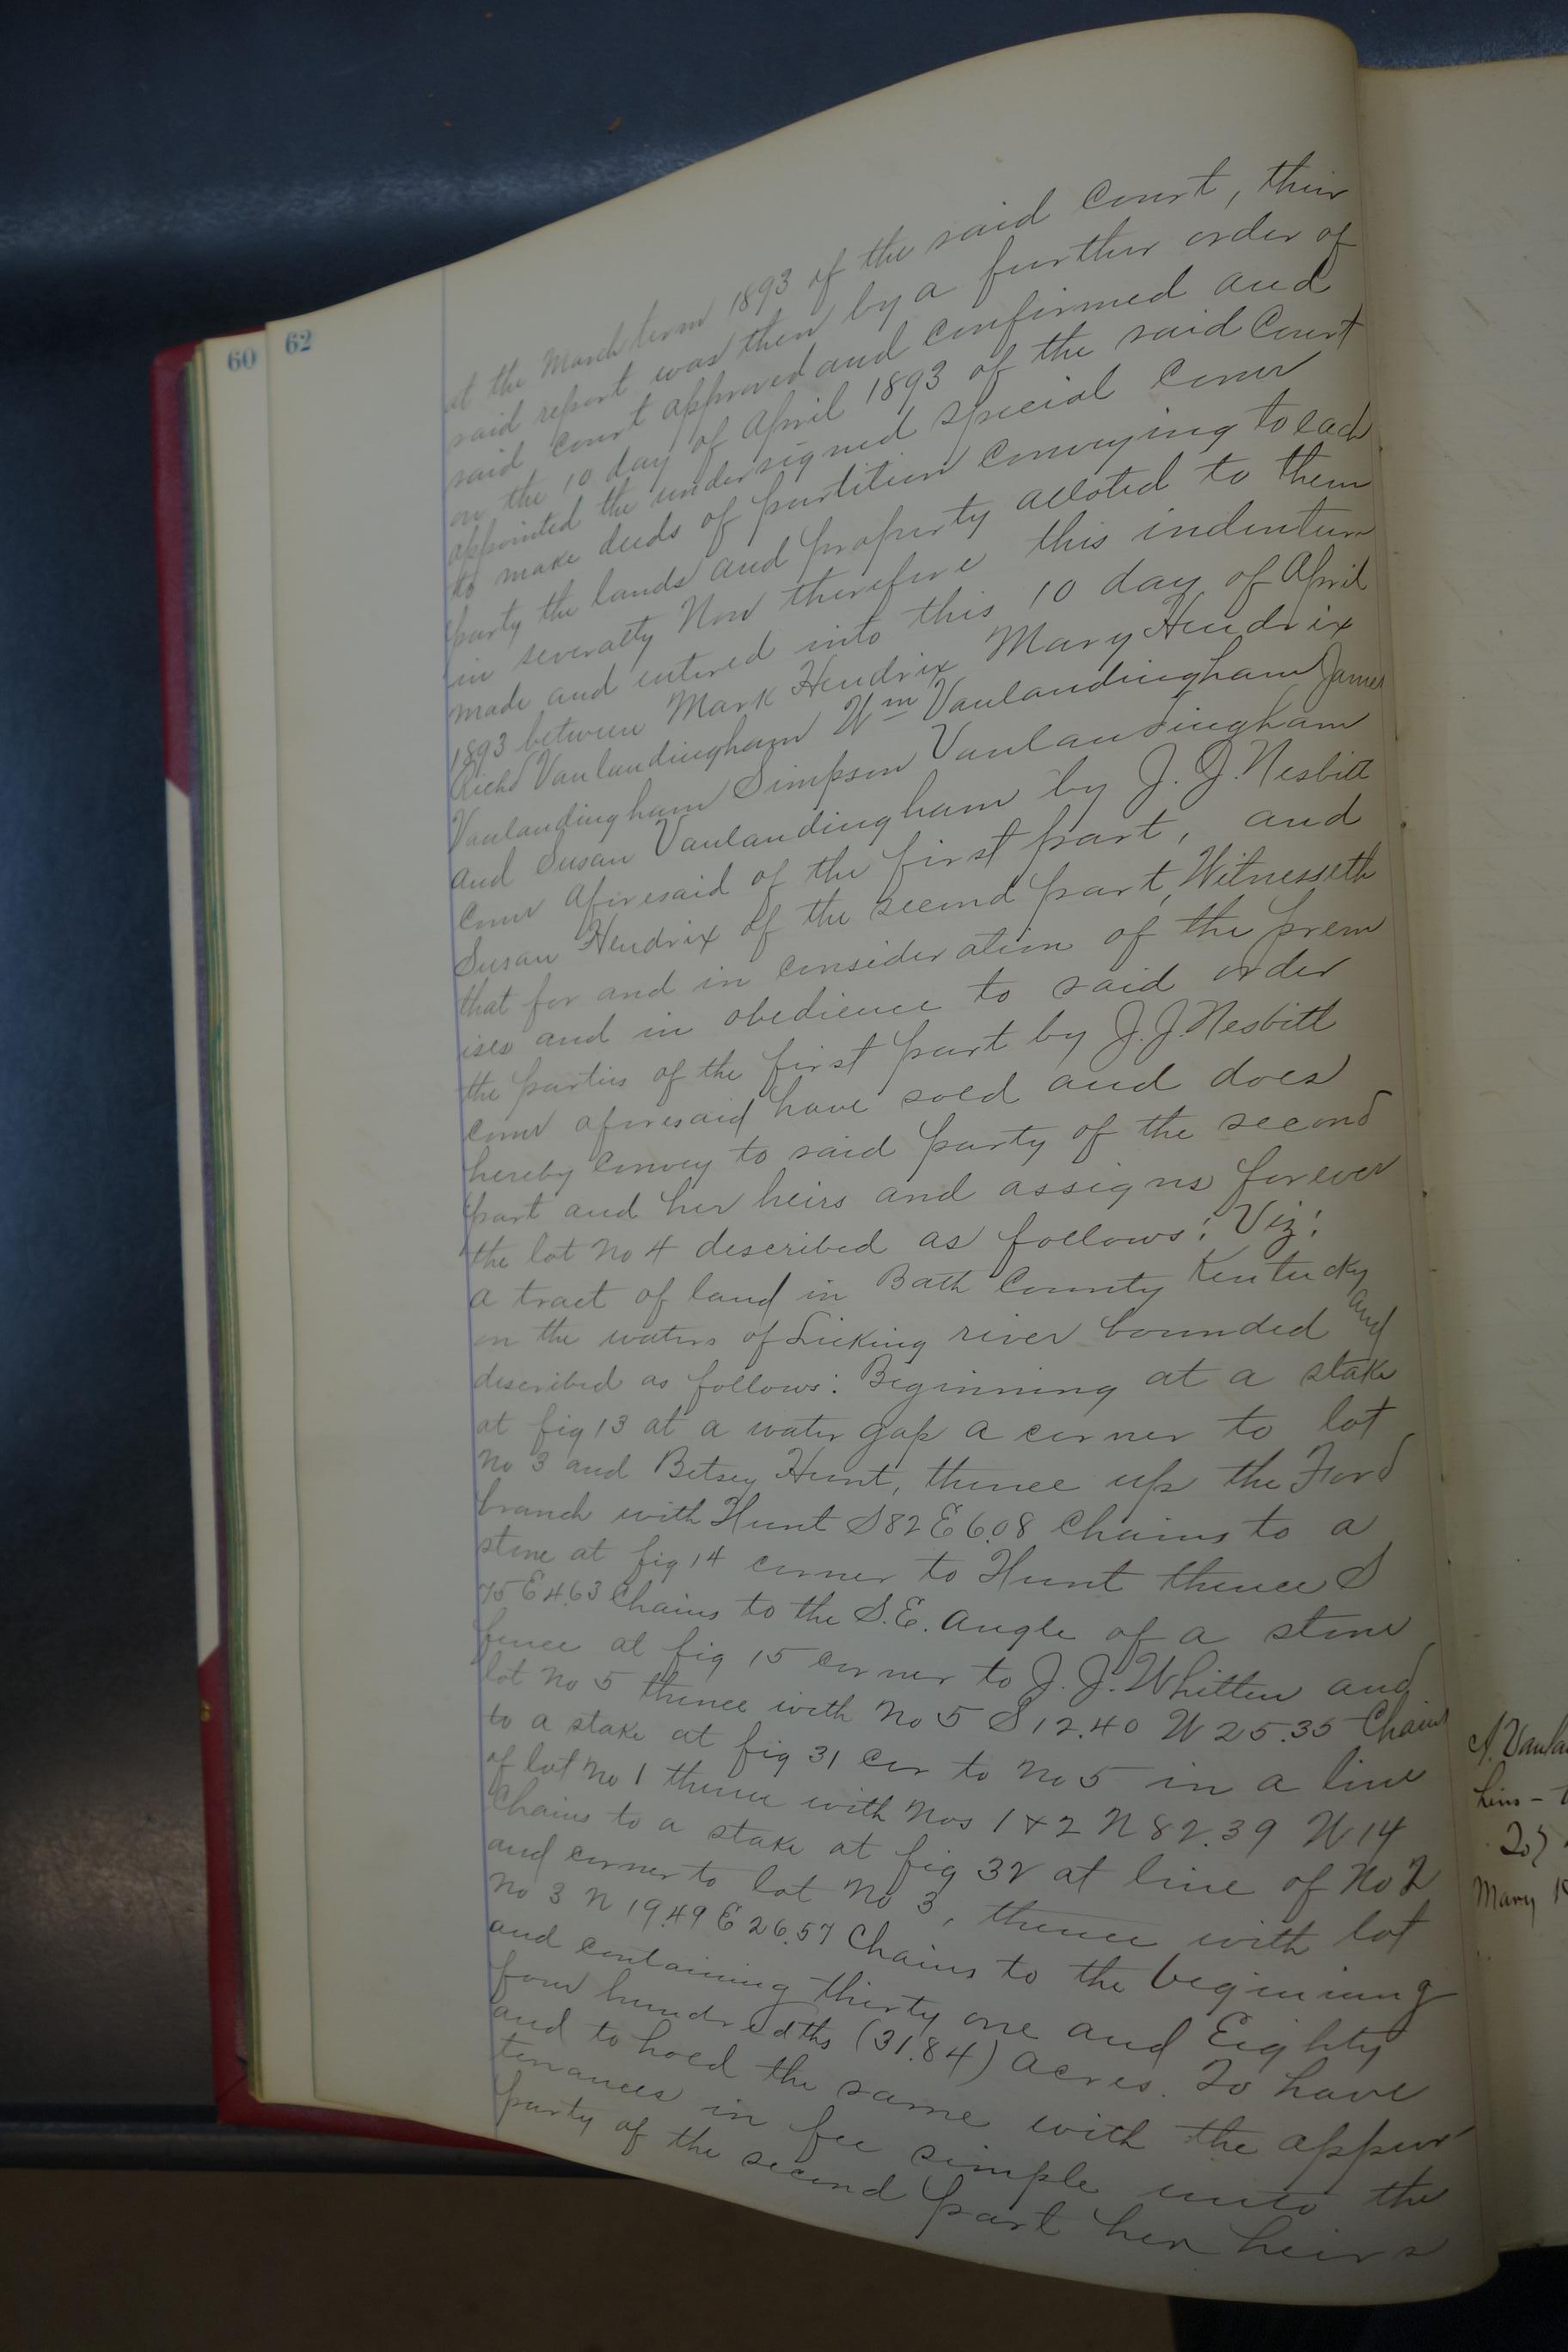 60
62
at the March term 1893 of the said Court, their
said report was then by a further order of
said Court approved and confirmed and
on the 10 day of April 1893 of the said Court
appointed the undersigned special Comr
to make deeds of partition conveying to each
party the lands and property alloted to them
in severalty Now therefore this indenture
made and entered into this 10 day of April
1893 between Mark Hendrix Mary Hendrix
Richd Vanlandingham Wm Vanlandingham James
Vanlandingham Simpson Vanlandingham
and Susan Vanlandingham by J. J. Nesbitt
Comr aforesaid of the first part, and
Susan Hendrix of the second part, Witnesseth
that for and in consideration of the prem
ises and in obedience to said order
the parties of the first part by J. J. Nesbitt
Comr aforesaid have sold and does
hereby convey to said party of the second
part and her heirs and assigns forever
the lot No 4 described as follows: Viz:
a tract of land in Bath County Kentucky
on the waters of Licking river bounded and
described as follows: Beginning at a stake
at fig 13 at a water gap a corner to lot
No 3 and Betsey Hunt, thence up the Ford
branch with Hunt S 82 E 6.08 Chains to a
stone at fig 14 corner to Hunt thence S
75 E 4.63 Chains to the S.E. angle of a stone
fence at fig 15 corner to J. J. Whitten and
lot No 5 thence with No 5 S 12.40 W 25.35 Chains
to a stake at fig 31 cor to No 5 in a line
of lot No 1 thence with Nos 1 & 2 N 82.39 W 14
Chains to a stake at fig 32 at line of No 2
and corner to lot No 3, thence with lot
No 3 N 19.49 E 26.57 Chains to the beginning
and containing thirty one and Eighty
four hundredths (31.84) acres. To have
and to hold the same with the appur
tenances in fee simple unto the
party of the second part her heirs
Mary